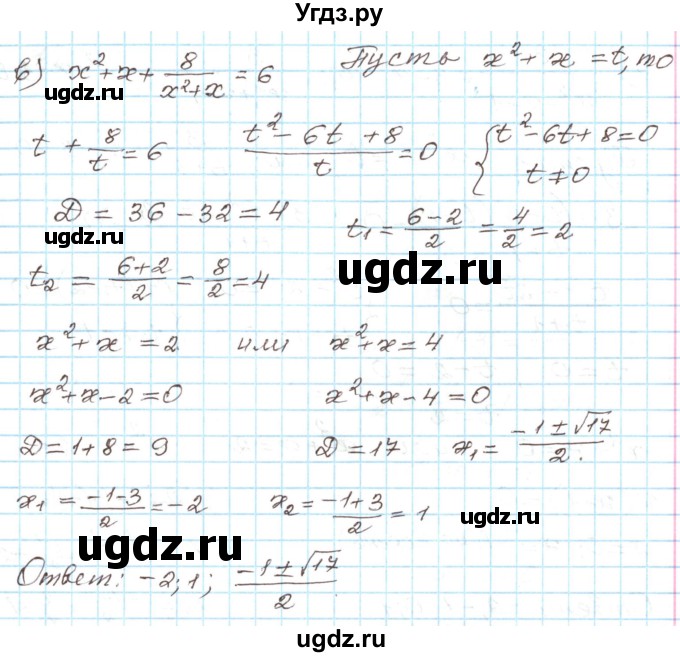 Угдз.ру
в) x²+x+ 8/(x²+x) = 6 Пусть x²+x=t, то
ugdz.ru
t + 8/t = 6 (t²-6t+8)/t = 0 { t²-6t+8=0
t≠0
Д = 36-32=4 t₁ = (6-2)/2 = 4/2 = 2
ugdz.ru
ugdz.ru
t₂ = (6+2)/2 = 8/2 = 4
x²+x = 2 или x²+x=4
x²+x-2=0 x²+x-4=0
Д=1+8=9 Д=17 x₁ = (-1±√17)/2.
x₁ = (-1-3)/2 = -2 x₂ = (-1+3)/2 = 1
ugdz.ru
ugdz.ru
Ответ: -2; 1; (-1±√17)/2
ugdz.ru